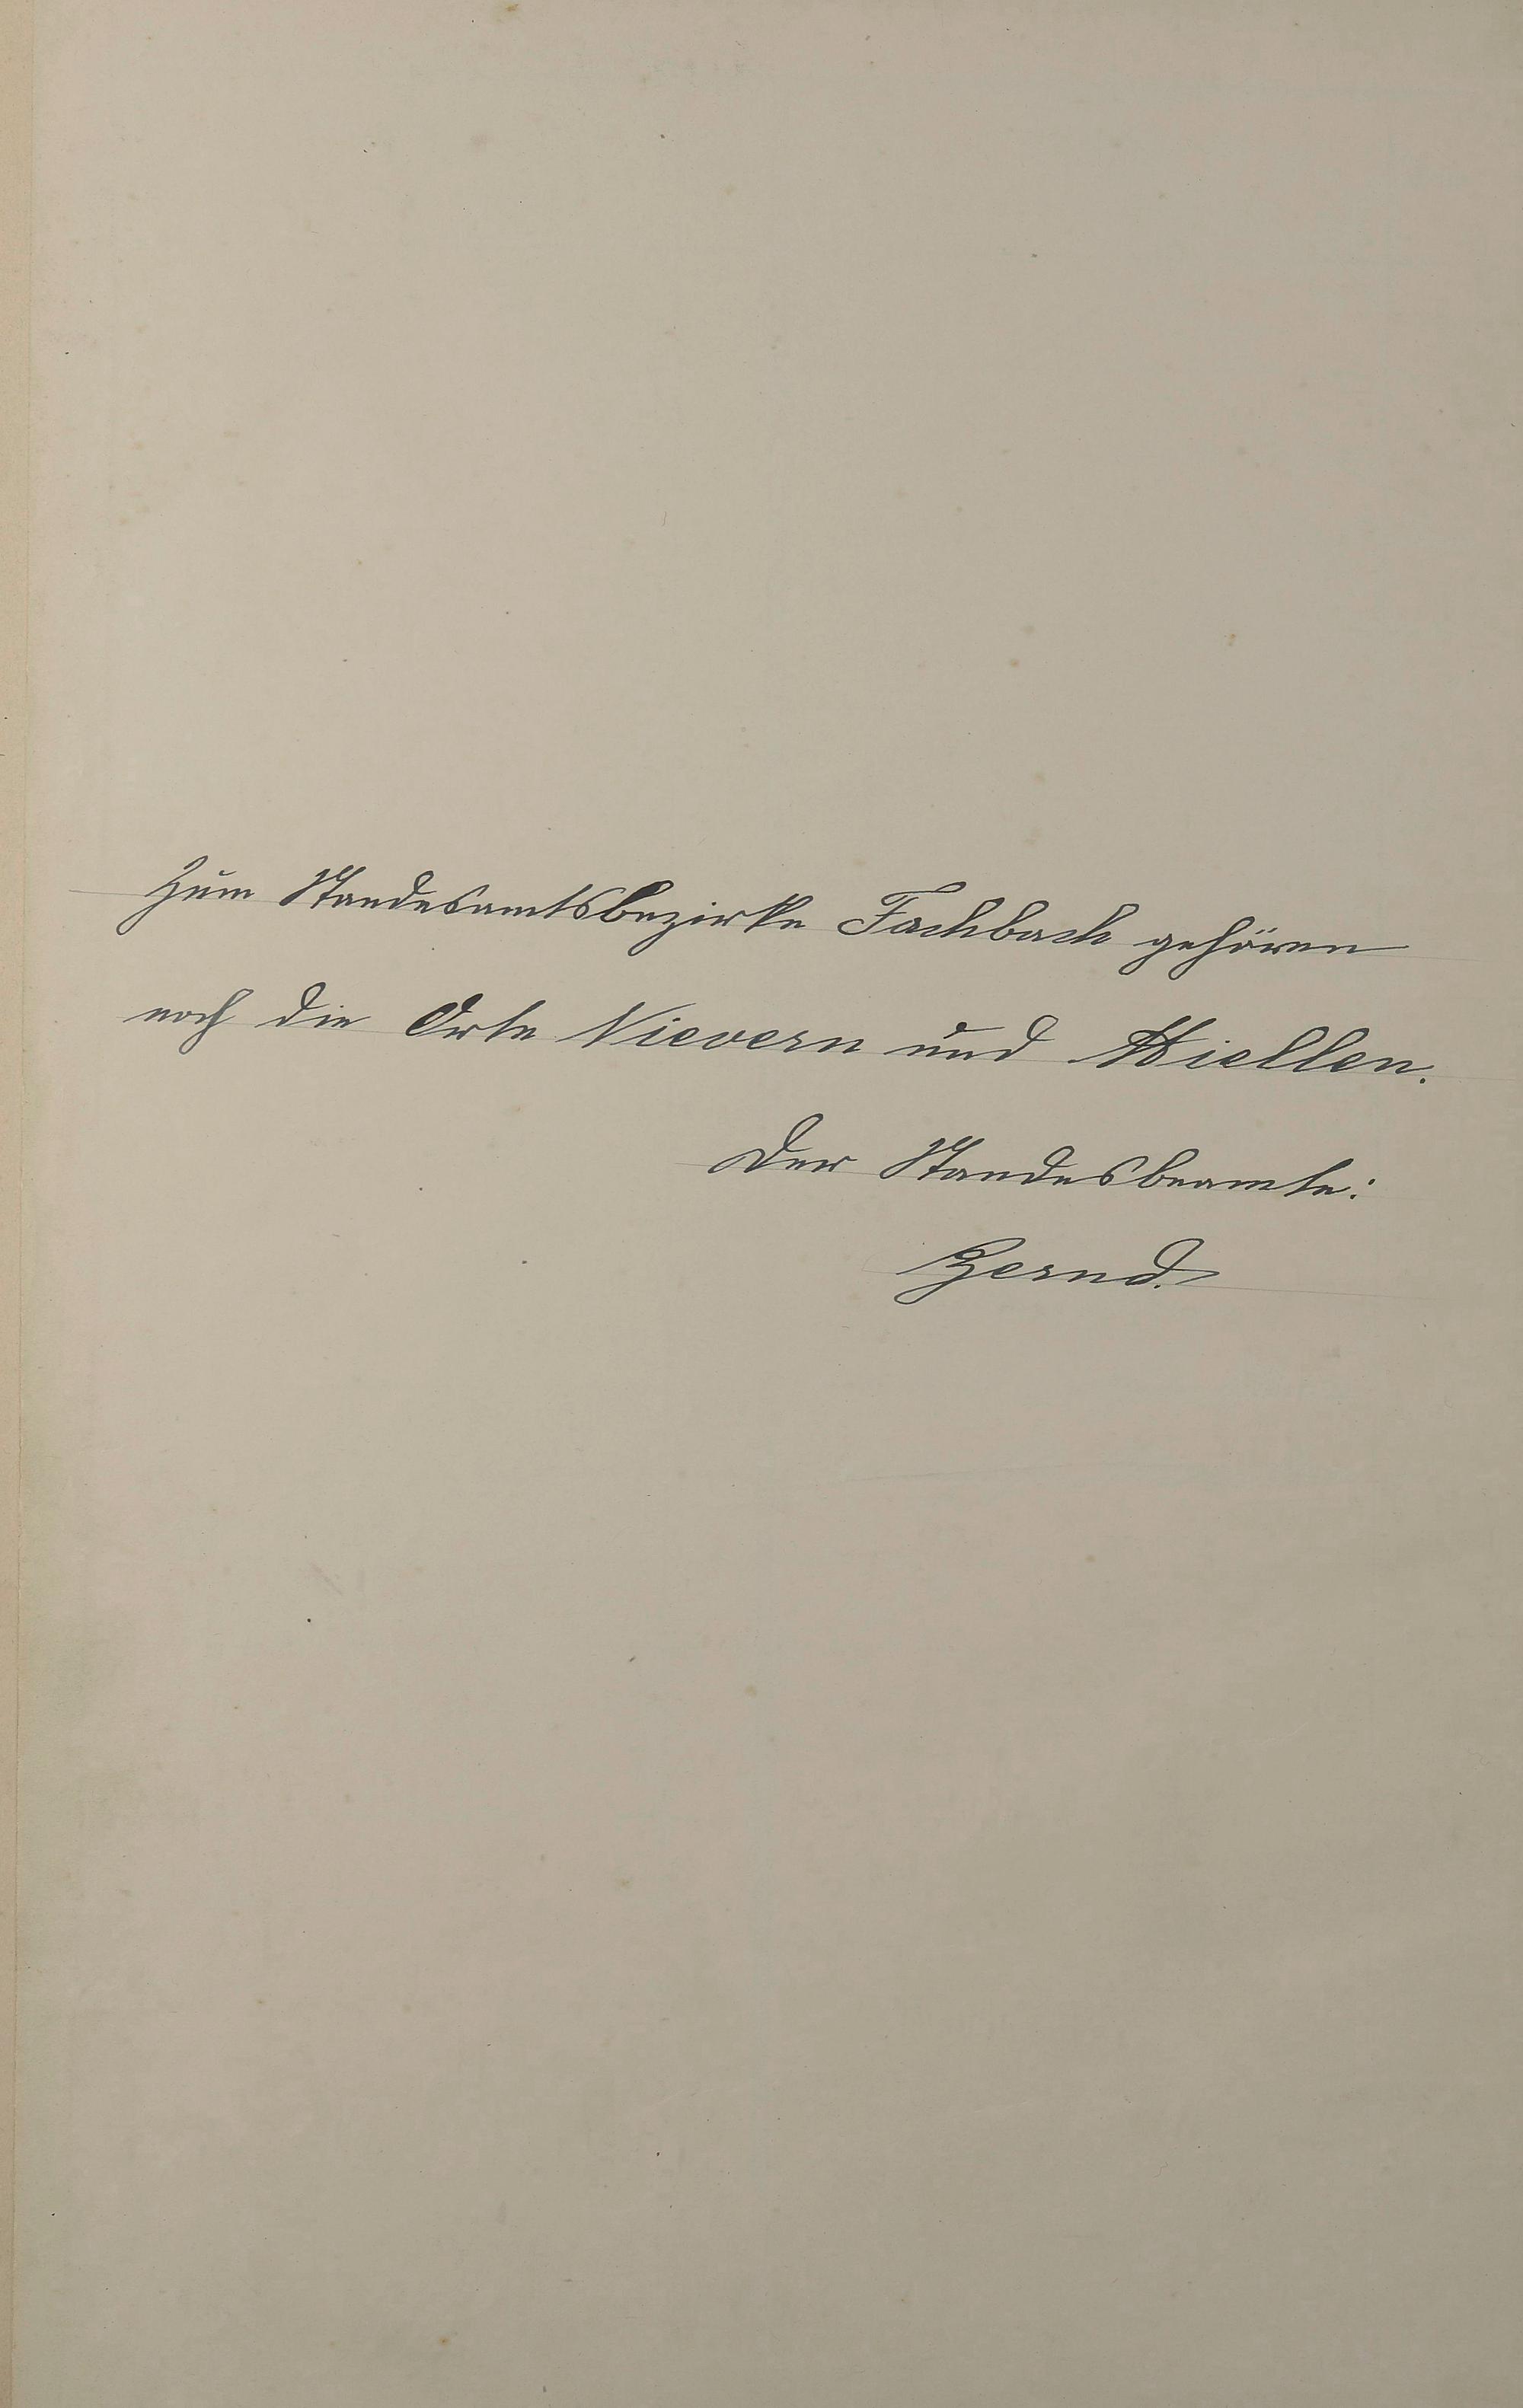 Zum Standesamtsbezirke Fachbach gehören
noch die Orte Nievern und Miellen.
Der Standesbeamte:
Zernd.